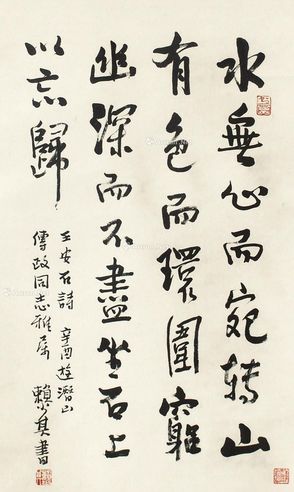 水無心而宛轉山
有色而環圍窮
幽深而不盡坐石上
以忘歸
王安石詩 辛酉遊潛山
政同志雅屬 賴少其書